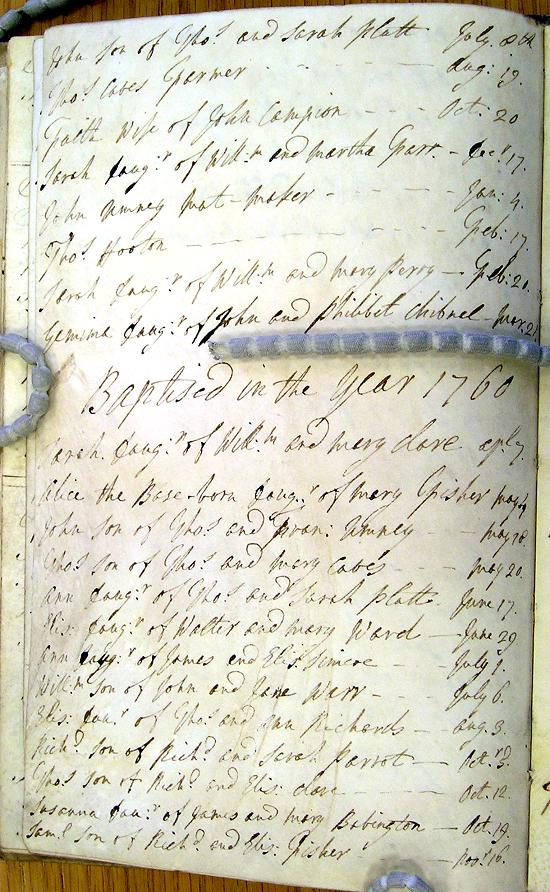 John son of Tho.s and Sarah Platt July. 8th
Tho.s Caves Farmer - - - Aug: 19.
Faith Wife of John Campion - - - Oct: 20
Sarah Daug.r of Will:m and Martha Farr. - Dec.r 17.
John Umney Mat-maker - - - Jan: 4.
Tho.s Hooton - - - Feb: 17.
Sarah Daug.r of Will:m and Mary Perry - Feb: 20.
Gemima Daug.r of John and Phibbet Chibnel - Mar: 21
Baptised in the Year 1760
Sarah. Daug.r of Will:m and Mary Clare Ap: 7.
Alice the Base-born Daug.r of Mary Fisher May
John Son of Tho.s and Fran: Umney - May 18.
Tho.s Son of Tho.s and Mary Caves - - May 20.
Ann Daug.r of Tho.s and Sarah Platt. June 17.
Elis: Daug.r of Walter and Mary Ward - June 29
Ann Daug.r of James and Elis: - - July 1.
Will:m Son of John and Jane Warr - - - July 6.
Elis: Dau.r of Tho.s and Ann Richards - Aug. 3.
Rich.d Son of Rich.d and Sarah Parrot - Oct.r 5.
Tho.s Son of Rich.d and Elis: Clare - - Oct. 12.
Susanna Dau.r of James and Mary Babington - Oct. 19.
Sam.l Son of Rich.d and Elis: Fisher - Nov.r 16.